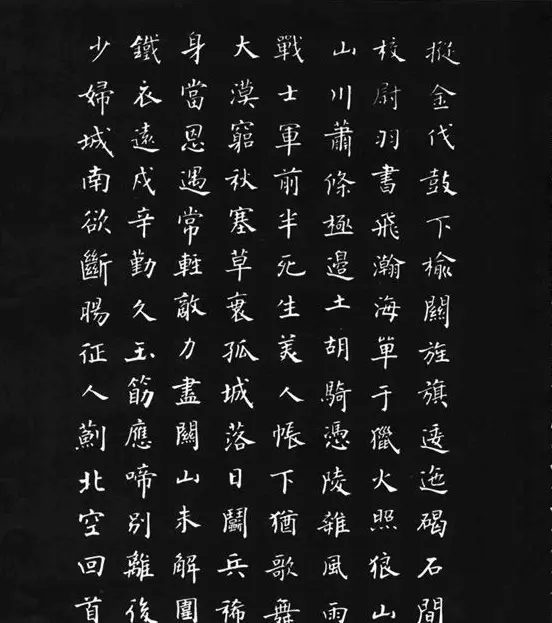 摐金伐鼓下榆關旌旗逶迤碣石間
校尉羽書飛瀚海單于獵火照狼山
山川蕭條極邊土胡騎憑陵雜風雨
戰士軍前半死生美人帳下猶歌舞
大漠窮秋塞草衰孤城落日鬬兵稀
身當恩遇常輕敵力盡關山未解圍
鐵衣遠戍辛勤久玉筋應啼別離後
少婦城南欲斷腸征人薊北空回首